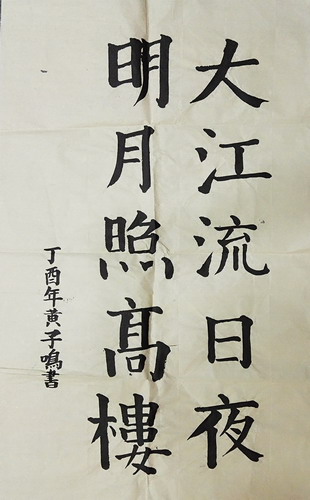 大江流日夜
明月照高樓
丁酉年黄子鳴書